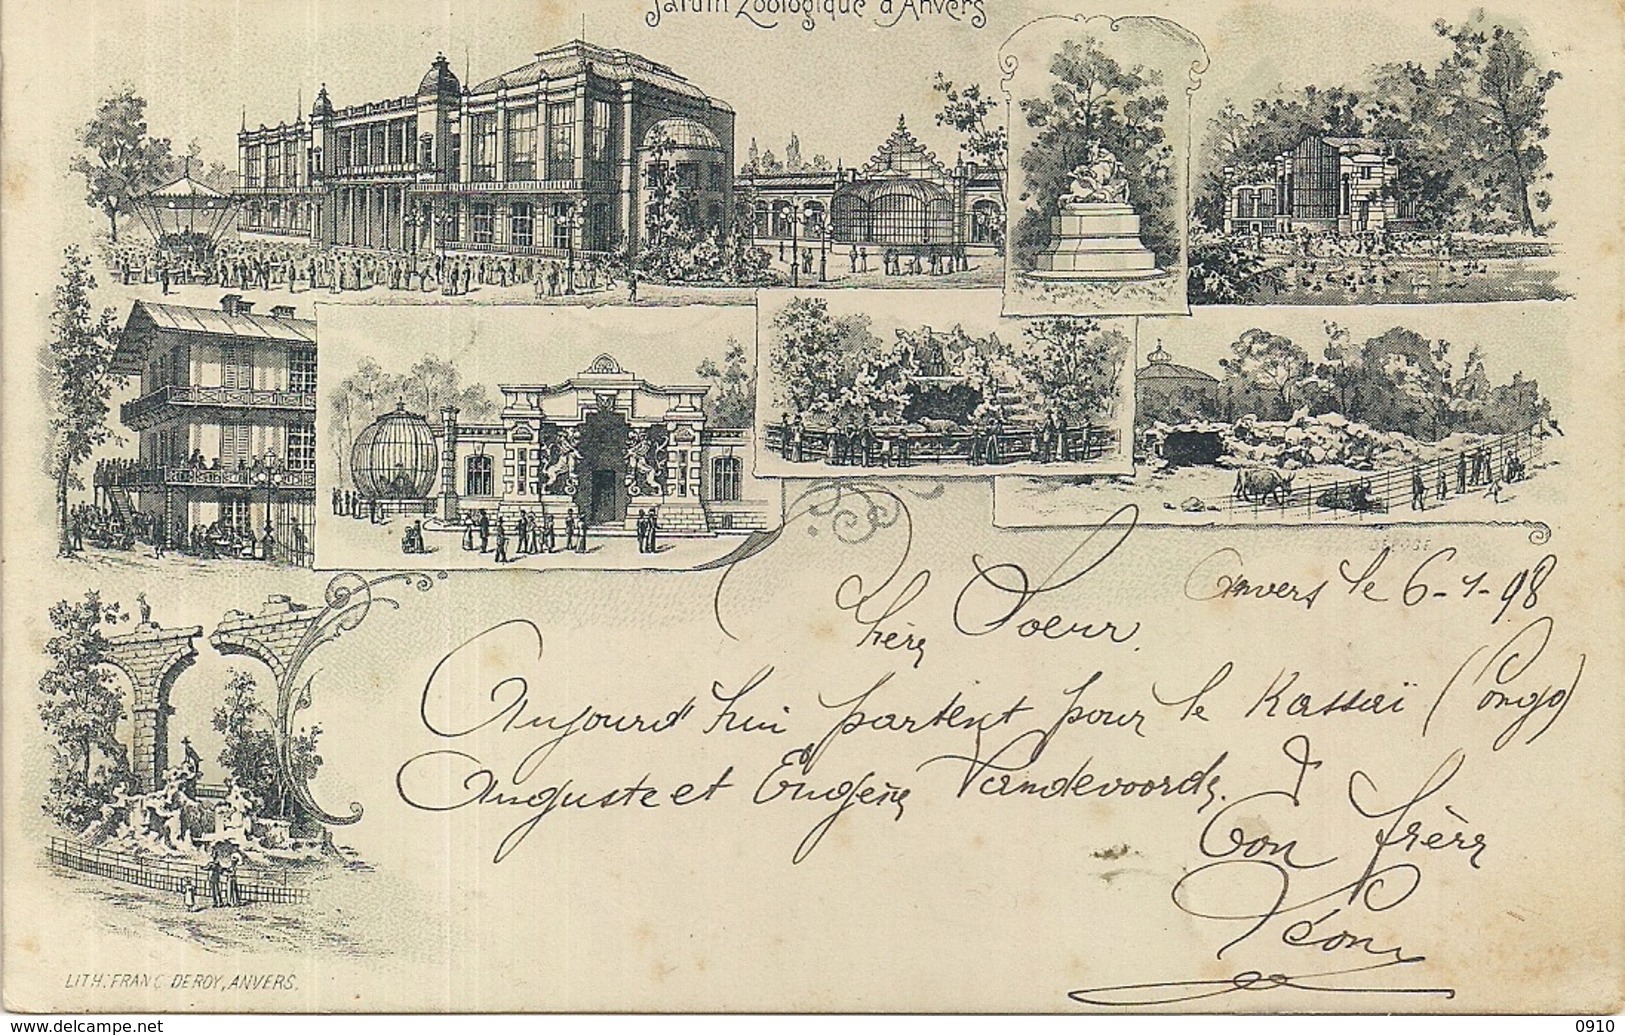 Jardin Zoologique d'Anvers
DEPOSE
Anvers le 6-1-98
Chère Soeur.
Aujourd'hui partent pour le Kassaï (Congo)
Auguste et Eugène Vandevoorde.
Ton frère
Léon
LITH. FRANÇ DEROY, ANVERS.
www.delcampe.net
0910